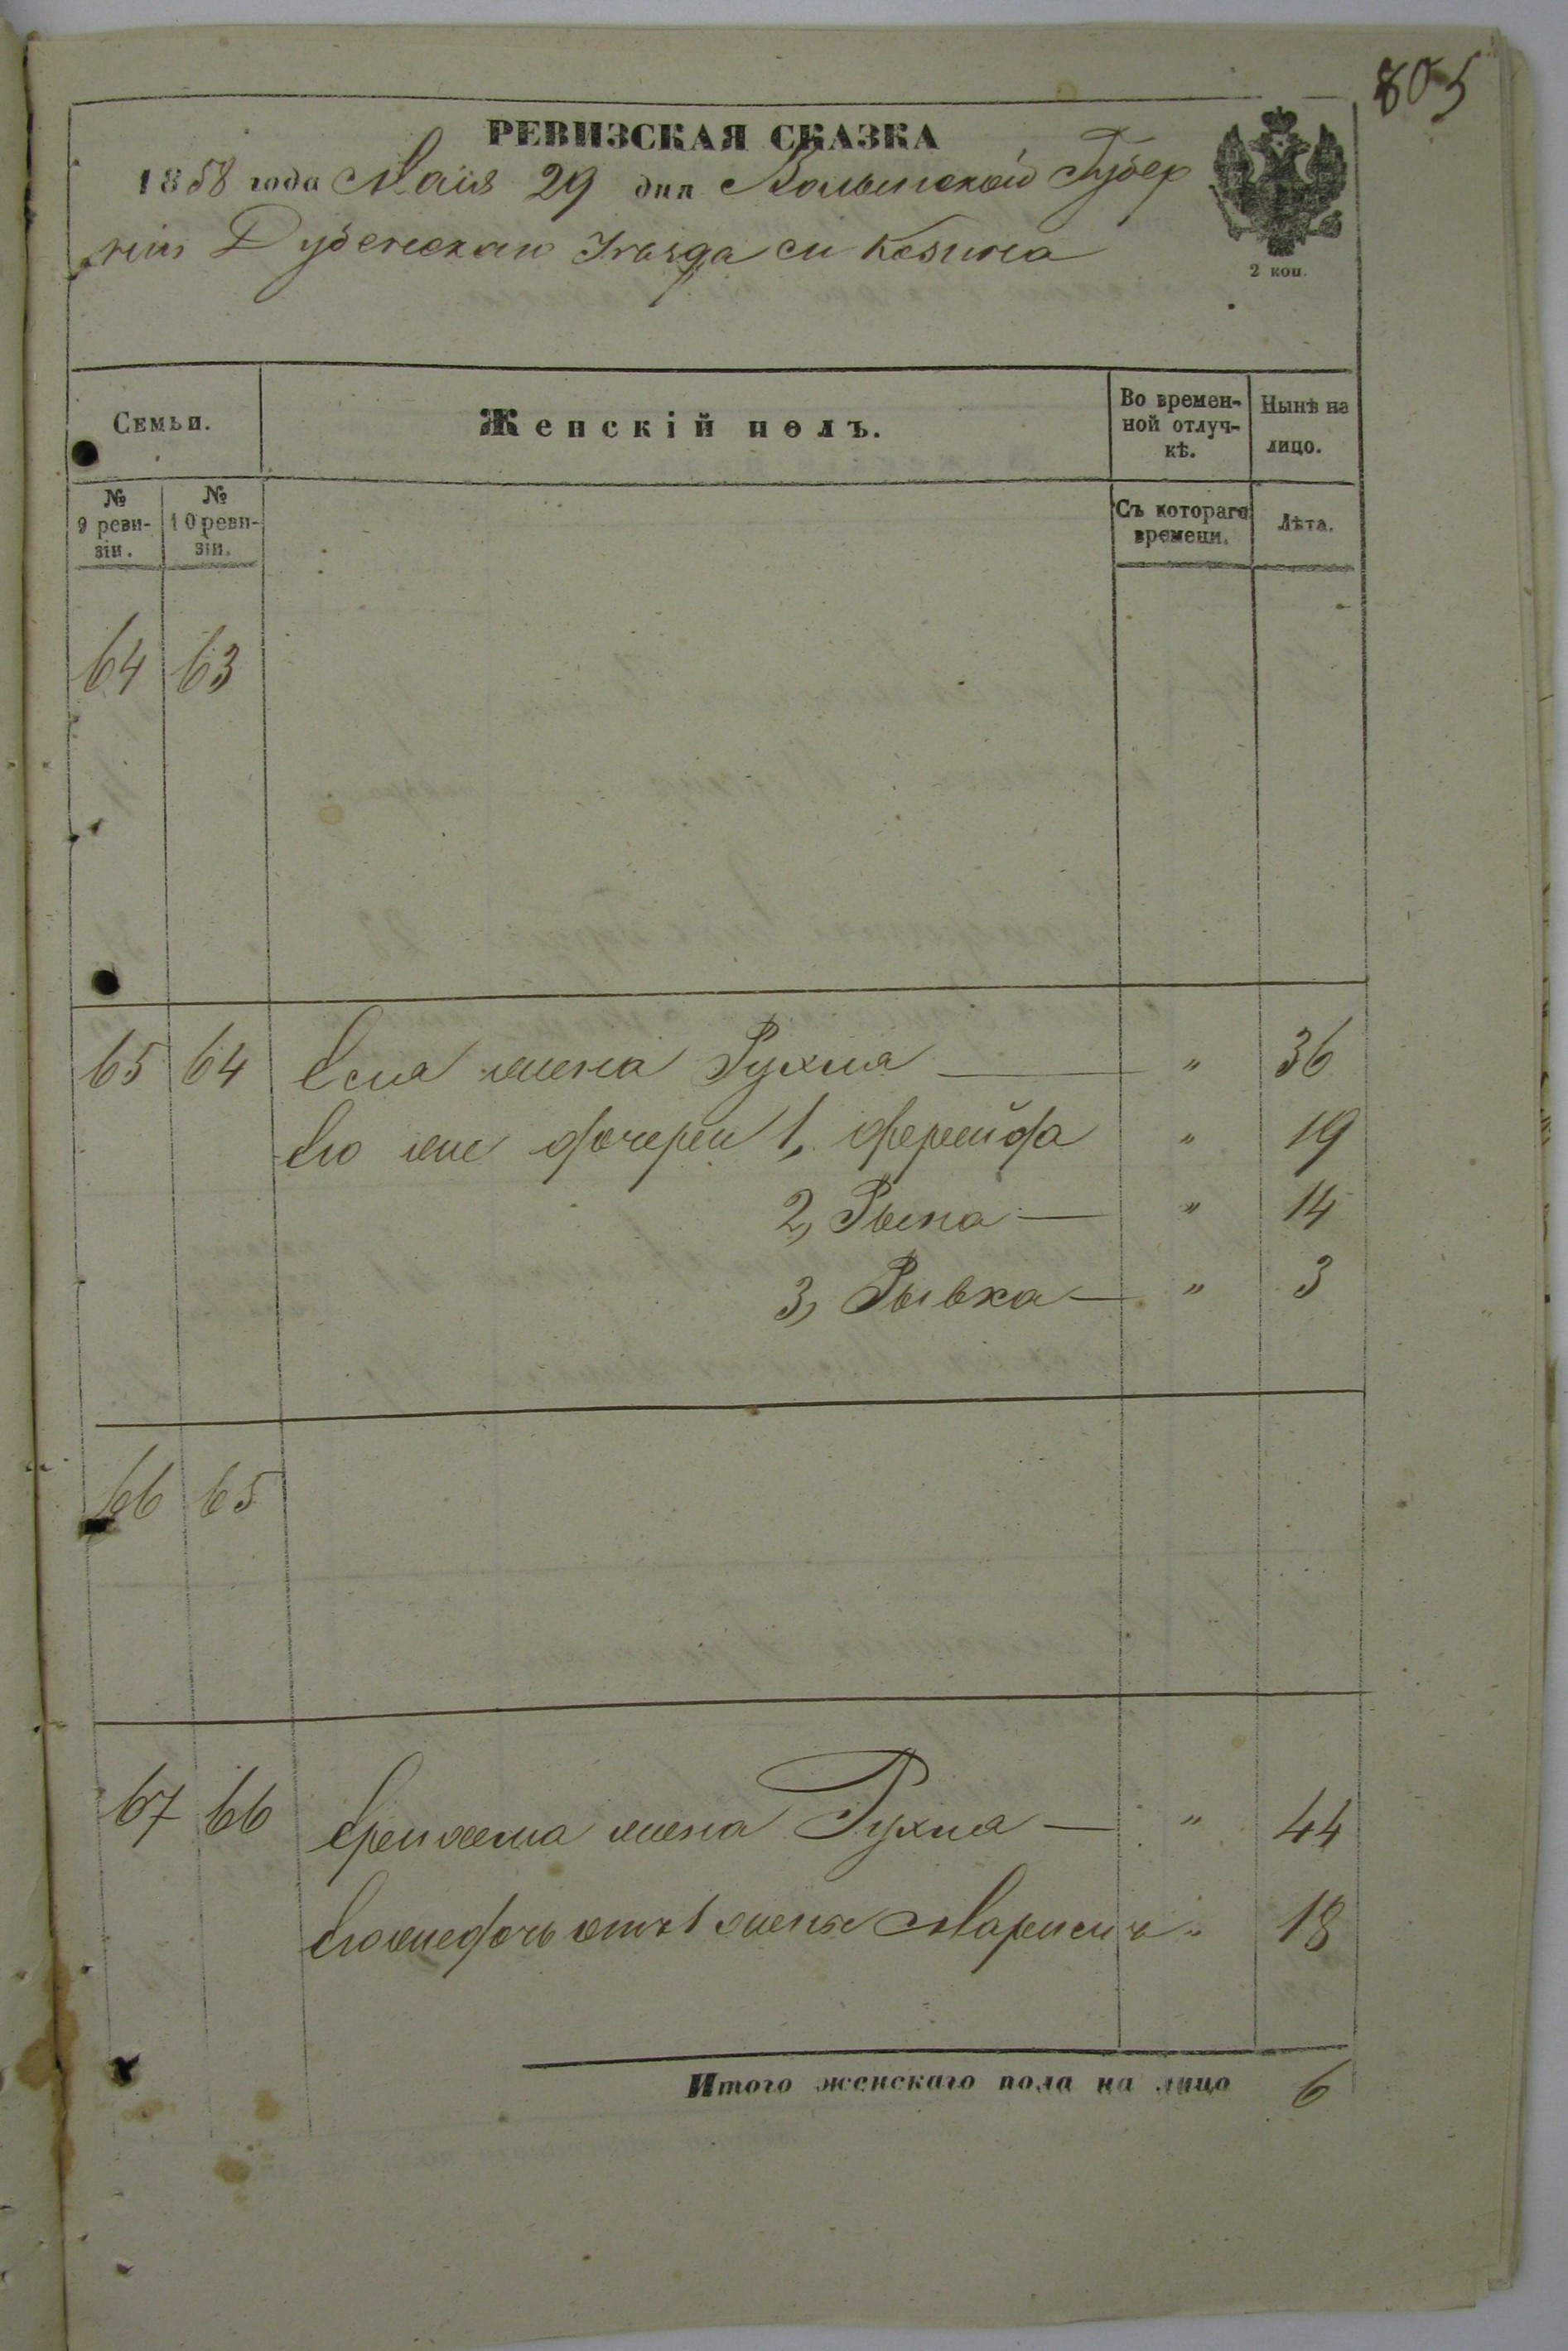 805
РЕВИЗСКАЯ СКАЗКА
1858 года Маія 29 дня Волынской Губер
ніи Дубенскаго Уѣзда м Козина
2 коп.
Семьи.
Женскій полъ.
Во времен-
ной отлуч-
кѣ.
Нынѣ на
лицо.
№
9 реви-
зіи.
№
10 реви-
зіи.
Съ котораго
времени.
Лѣта.
64 63
65 64 жена Рухля — " 36
Его же дочери 1, Фрейда " 19
2, — " 14
3, Рывка — " 3
66 65
67 66 жена Рухля — " 44
Его же дочь отъ 1 жены " 18
Итого женскаго пола на лицо 6